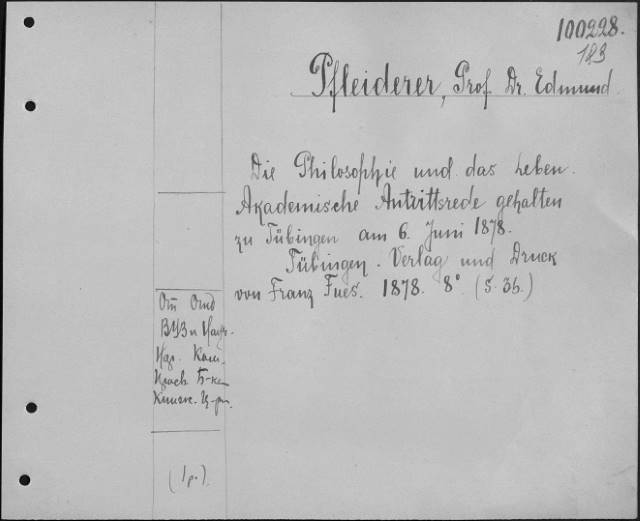 100228.
183
Pfleiderer, Prof. Dr. Edmund.
Die Philosophie und das Leben.
Akademische Antrittsrede gehalten
zu Tübingen am 6. Juni 1878.
Tübingen. Verlag und Druck
von Franz Fues. 1878. 8° (S. 36.)
От Отд
ВУЗ и Науч.
Изд. Кат.
Б-ки
Книжн. Ц-ры.
(1 р.)